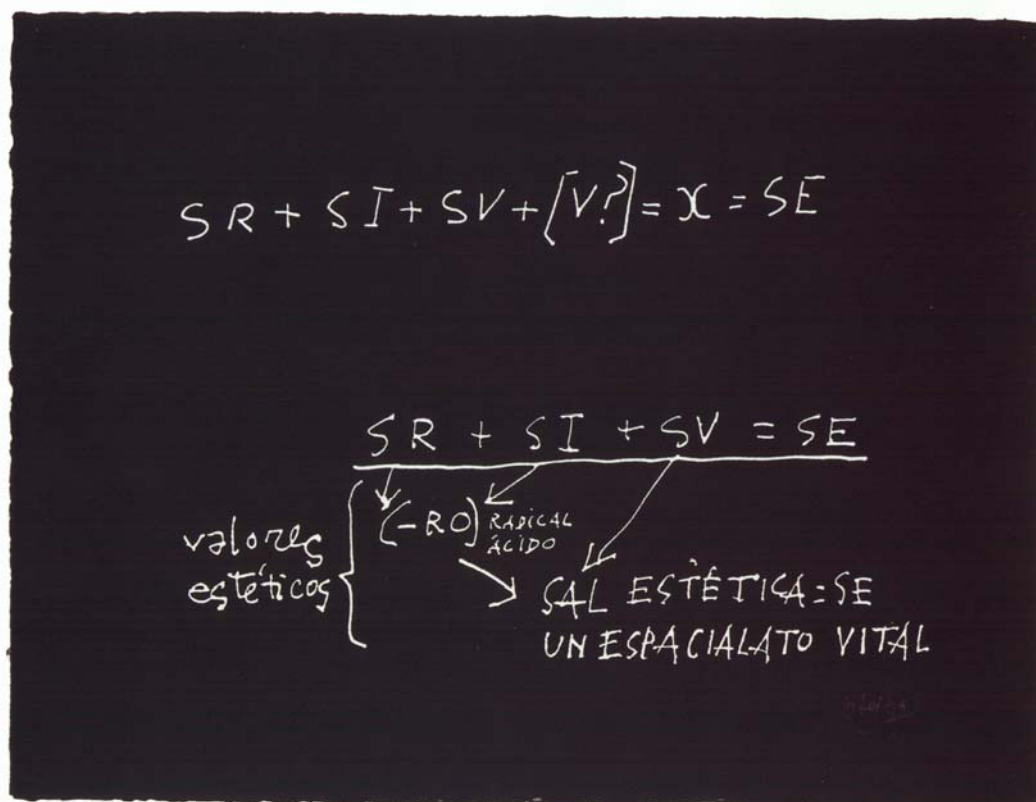 SR + SI + SV + [V?] = x = SE
SR + SI + SV = SE
valores
estéticos
(-RO) RADICAL
ÁCIDO
SAL ESTÉTICA = SE
UN ESPACIALATO VITAL